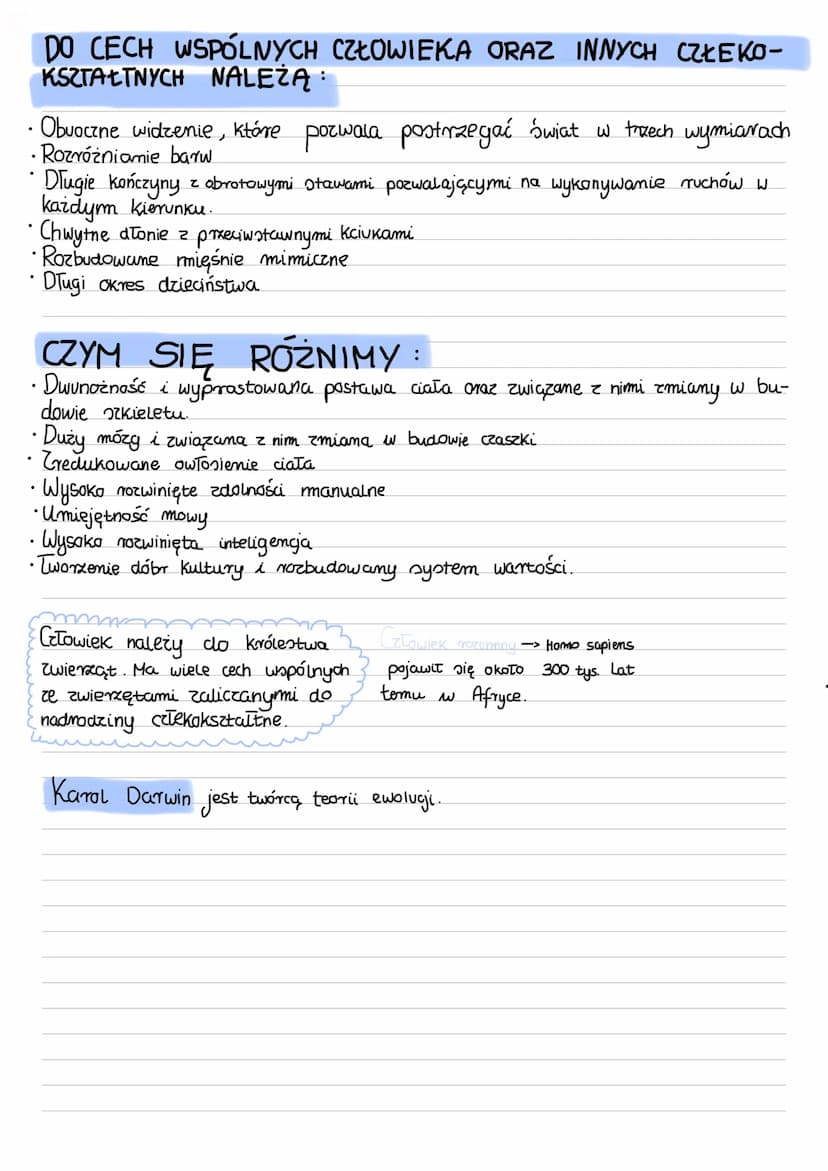 DO CECH WSPÓLNYCH CZŁOWIEKA ORAZ INNYCH CZŁEKO-
KSZTAŁTNYCH NALEŻĄ:
· Obuoczne widzenie, które pozwala postrzegać świat w trzech wymiarach
· Rozróżnianie barw
· Długie kończyny z obrotowymi stawami pozwalającymi na wykonywanie ruchów w
każdym kierunku.
· Chwytne dłonie z przeciwstawnymi kciukami
· Rozbudowane mięśnie mimiczne
· Długi okres dzieciństwa
CZYM SIĘ RÓŻNIMY:
· Dwunożność i wyprostowana postawa ciała oraz związane z nimi zmiany w bu-
dowie szkieletu.
· Duży mózg i związana z nim zmiana w budowie czaszki
· Zredukowane owłosienie ciała
· Wysoko rozwinięte zdolności manualne
· Umiejętność mowy
· Wysoko rozwinięta inteligencja
· Tworzenie dóbr kultury i rozbudowany system wartości.
Człowiek należy do królestwa
zwierząt. Ma wiele cech wspólnych
ze zwierzętami zaliczanymi do
nadrodziny człekokształtne.
Człowiek rozumny → Homo sapiens
pojawił się około 300 tys. Lat
temu w Afryce.
Karol Darwin jest twórcą teorii ewolucji.